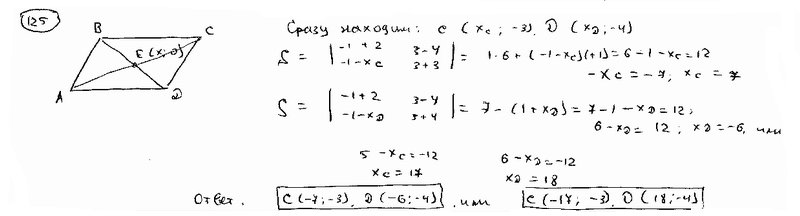 125
B
C
E (x; 0)
A
D
Сразу находим: C (x_C; -3), D (x_D; -4)
S = | -1+2 3-4 | = 1·6 + (-1-x_C)(+1) = 6-1-x_C = 12
| -1-x_C 3+3 | -x_C = -7, x_C = 7
S = | -1+2 3-4 | = 7-(1+x_D) = 7-1-x_D = 12;
| -1-x_D 3+4 | 6-x_D = 12; x_D = -6, или
5-x_C = -12 6-x_D = -12
x_C = 17 x_D = 18
Ответ. C (-7; -3), D (-6; -4) , или C (-17; -3), D (18; -4)